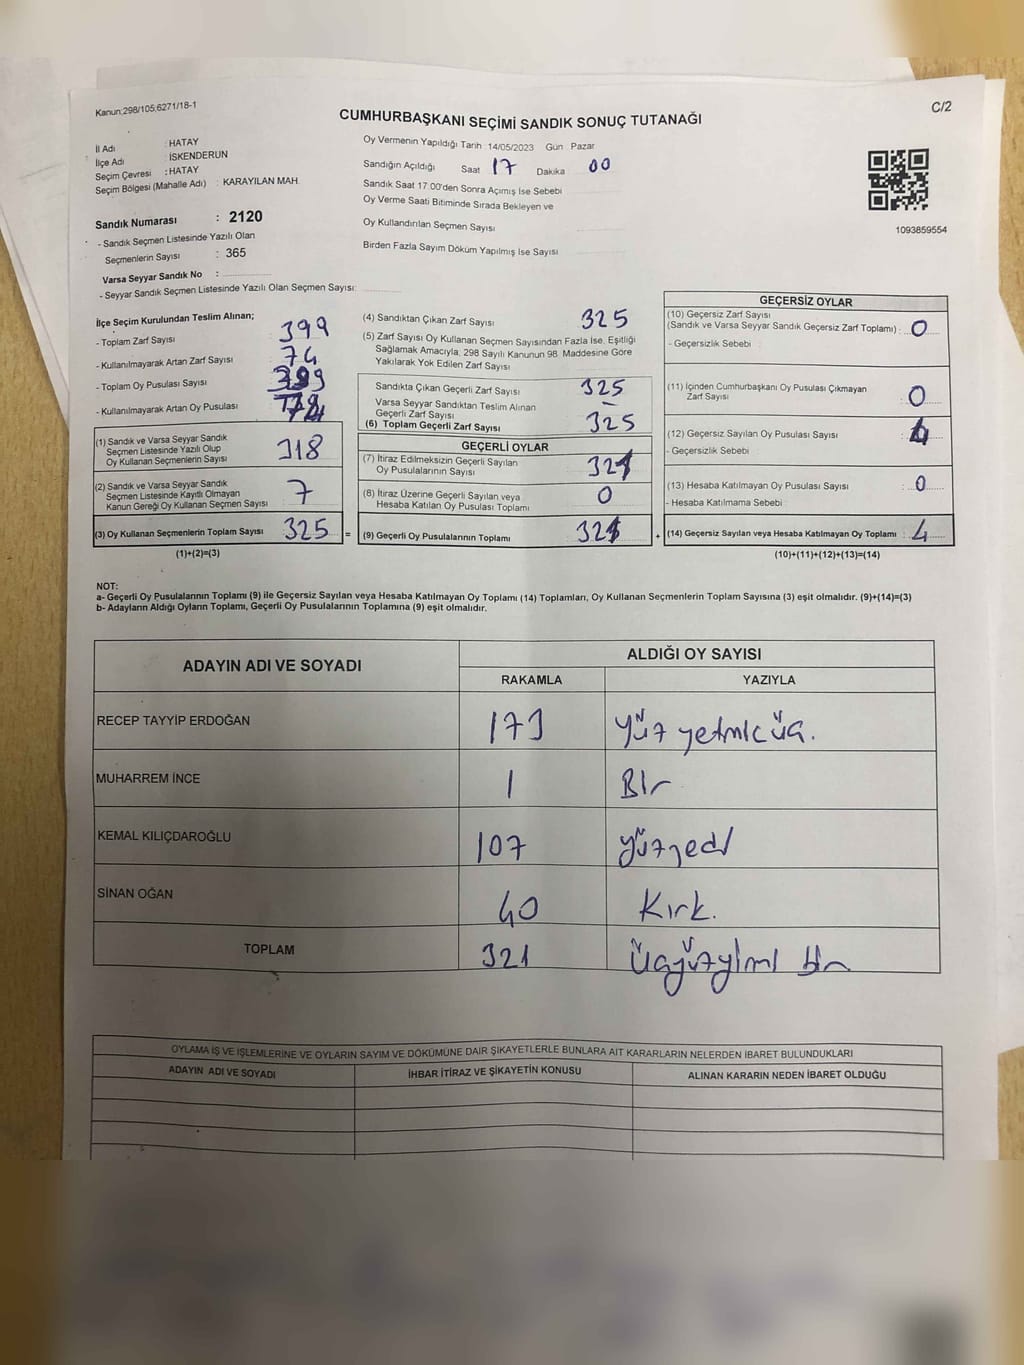 Kanun:298/105;6271/18-1
C/2
CUMHURBAŞKANI SEÇİMİ SANDIK SONUÇ TUTANAĞI
İl Adı : HATAY
İlçe Adı : İSKENDERUN
Seçim Çevresi : HATAY
Seçim Bölgesi (Mahalle Adı) : KARAYILAN MAH.
Sandık Numarası : 2120
- Sandık Seçmen Listesinde Yazılı Olan
Seçmenlerin Sayısı : 365
Varsa Seyyar Sandık No :
- Seyyar Sandık Seçmen Listesinde Yazılı Olan Seçmen Sayısı:
Oy Vermenin Yapıldığı Tarih :14/05/2023 Gün : Pazar
Sandığın Açıldığı Saat 17 Dakika 00
Sandık Saat 17.00'den Sonra Açılmış İse Sebebi
Oy Verme Saati Bitiminde Sırada Bekleyen ve
Oy Kullandırılan Seçmen Sayısı
Birden Fazla Sayım Döküm Yapılmış İse Sayısı
1093859554
İlçe Seçim Kurulundan Teslim Alınan;
- Toplam Zarf Sayısı 399
- Kullanılmayarak Artan Zarf Sayısı 74
- Toplam Oy Pusulası Sayısı 399
- Kullanılmayarak Artan Oy Pusulası 74
(1) Sandık ve Varsa Seyyar Sandık
Seçmen Listesinde Yazılı Olup
Oy Kullanan Seçmenlerin Sayısı 318
(2) Sandık ve Varsa Seyyar Sandık
Seçmen Listesinde Kayıtlı Olmayan
Kanun Gereği Oy Kullanan Seçmen Sayısı 7
(3) Oy Kullanan Seçmenlerin Toplam Sayısı 325 =
(1)+(2)=(3)
(4) Sandıktan Çıkan Zarf Sayısı 325
(5) Zarf Sayısı Oy Kullanan Seçmen Sayısından Fazla İse, Eşitliği
Sağlamak Amacıyla, 298 Sayılı Kanunun 98. Maddesine Göre
Yakılarak Yok Edilen Zarf Sayısı
Sandıkta Çıkan Geçerli Zarf Sayısı 325
Varsa Seyyar Sandıktan Teslim Alınan
Geçerli Zarf Sayısı –
(6) Toplam Geçerli Zarf Sayısı 325
GEÇERLİ OYLAR
(7) İtiraz Edilmeksizin Geçerli Sayılan
Oy Pusulalarının Sayısı 321
(8) İtiraz Üzerine Geçerli Sayılan veya
Hesaba Katılan Oy Pusulası Toplamı 0
(9) Geçerli Oy Pusulalarının Toplamı 321 +
GEÇERSİZ OYLAR
(10) Geçersiz Zarf Sayısı
(Sandık ve Varsa Seyyar Sandık Geçersiz Zarf Toplamı) : 0
- Geçersizlik Sebebi :
(11) İçinden Cumhurbaşkanı Oy Pusulası Çıkmayan
Zarf Sayısı : 0
(12) Geçersiz Sayılan Oy Pusulası Sayısı : 4
- Geçersizlik Sebebi :
(13) Hesaba Katılmayan Oy Pusulası Sayısı : 0
- Hesaba Katılmama Sebebi :
(14) Geçersiz Sayılan veya Hesaba Katılmayan Oy Toplamı : 4
(10)+(11)+(12)+(13)=(14)
NOT:
a- Geçerli Oy Pusulalarının Toplamı (9) ile Geçersiz Sayılan veya Hesaba Katılmayan Oy Toplamı (14) Toplamları, Oy Kullanan Seçmenlerin Toplam Sayısına (3) eşit olmalıdır. (9)+(14)=(3)
b- Adayların Aldığı Oyların Toplamı, Geçerli Oy Pusulalarının Toplamına (9) eşit olmalıdır.
ADAYIN ADI VE SOYADI ALDIĞI OY SAYISI
RAKAMLA YAZIYLA
RECEP TAYYİP ERDOĞAN 173 yüz yetmiş üç.
MUHARREM İNCE 1 Bir
KEMAL KILIÇDAROĞLU 107 yüzyedi
SİNAN OĞAN 40 Kırk.
TOPLAM 321 üçyüzyirmi bir
OYLAMA İŞ VE İŞLEMLERİNE VE OYLARIN SAYIM VE DÖKÜMÜNE DAİR ŞİKAYETLERLE BUNLARA AİT KARARLARIN NELERDEN İBARET BULUNDUKLARI
ADAYIN ADI VE SOYADI İHBAR İTİRAZ VE ŞİKAYETİN KONUSU ALINAN KARARIN NEDEN İBARET OLDUĞU